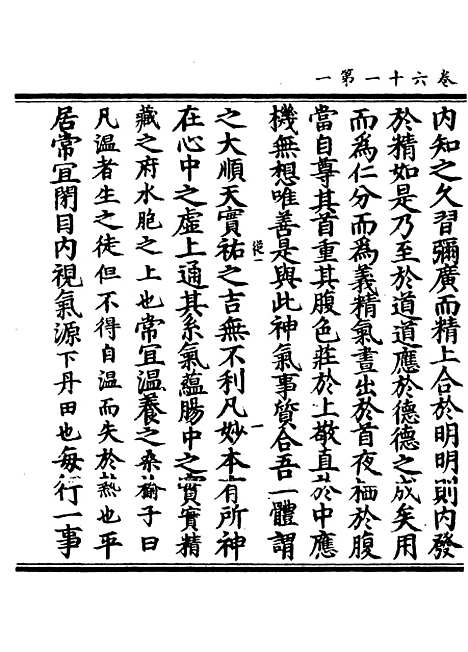 卷六十一第一
內知之久習彌廣而精上合於明明則內發
於精如是乃至於道道應於德德之成矣用
而爲仁分而爲義精氣晝出於首夜栖於腹
當自尊其首重其腹色莊於上敬直於中應
機無想唯善是與此神氣事質合吾一體謂
從一
一
之大順天實祐之吉無不利凡妙本有所神
在心中之虛上通其系氣蘊腸中之實實精
藏之府水胞之上也常宜溫養之桑榆子曰
凡温者生之徒但不得自温而失於熱也平
居常宜閉目內視氣源下丹田也每行一事